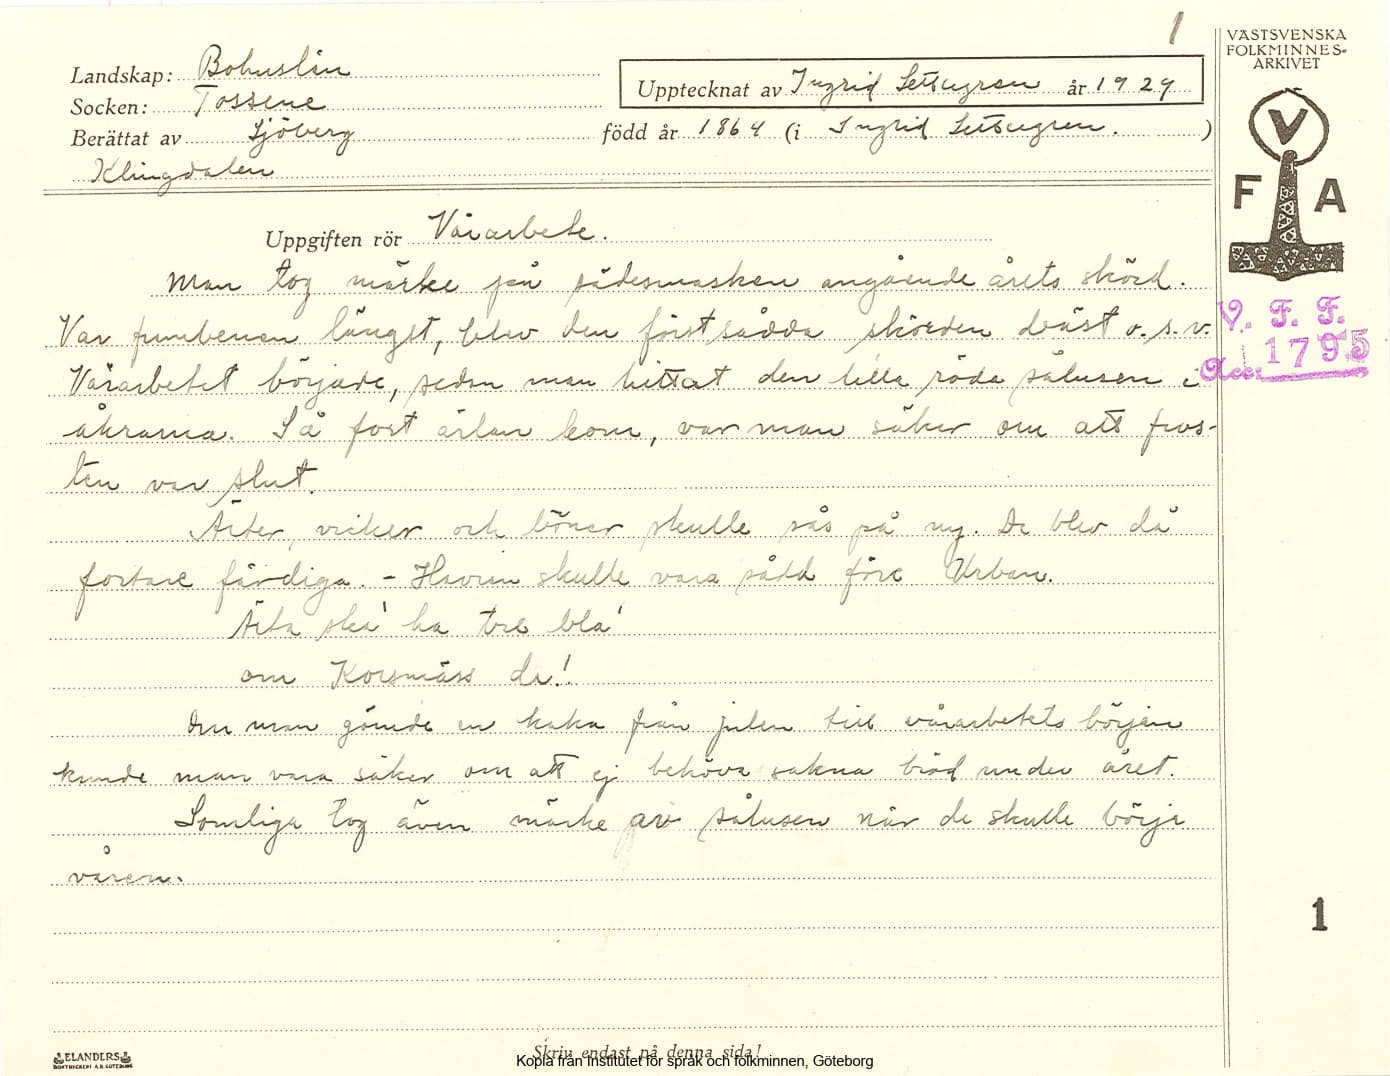 1
VÄSTSVENSKA
FOLKMINNES-
ARKIVET
Landskap: Bohuslän
Upptecknat av Ingrid år 1929
Socken: Tossene
Berättat av Sjöberg född år 1864 (i Ingrid .)
Klingdalen
V
F A
Uppgiften rör Vårarbete.
Man tog märke på sädesmasken angående årets skörd.
Var frambenen längst, blev den först sådda skörden bäst o.s.v.
Vårarbetet började, sedan man hittat den lilla röda sålusen i
åkrarna. Så fort ärlan kom, var man säker om att fros-
ten var slut.
Ärter, vicker och bönor skulle sås på ny. De blev då
fortare färdiga. – Havren skulle vara sådd före Urban.
Ärta ska' ha tre bla'
om Korsmäss da'!
Om man gömde en kaka från julen till vårarbetets början
kunde man vara säker om att ej behöva sakna bröd under året.
Somliga tog även märke av sålusen när de skulle börja
våren.
V. F. F.
Acc. 1795
1
ELANDERS
BOKTRYCKERI A.B. GÖTEBORG
Skriv endast på denna sida!
Kopia från Institutet för språk och folkminnen, Göteborg